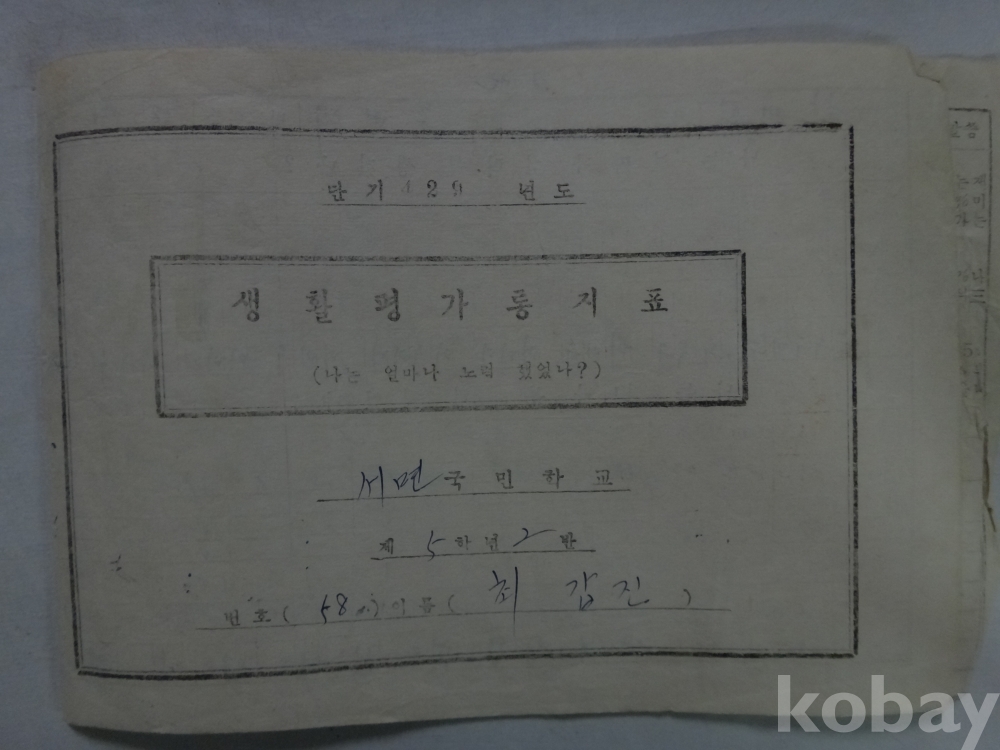 단기 429 년도
생활평가통지표
(나는 얼마나 노력 했었나?)
서면국민학교
제 5학년 2반
번호( 58 )이름( 최 갑 진 )
말씀
kobay